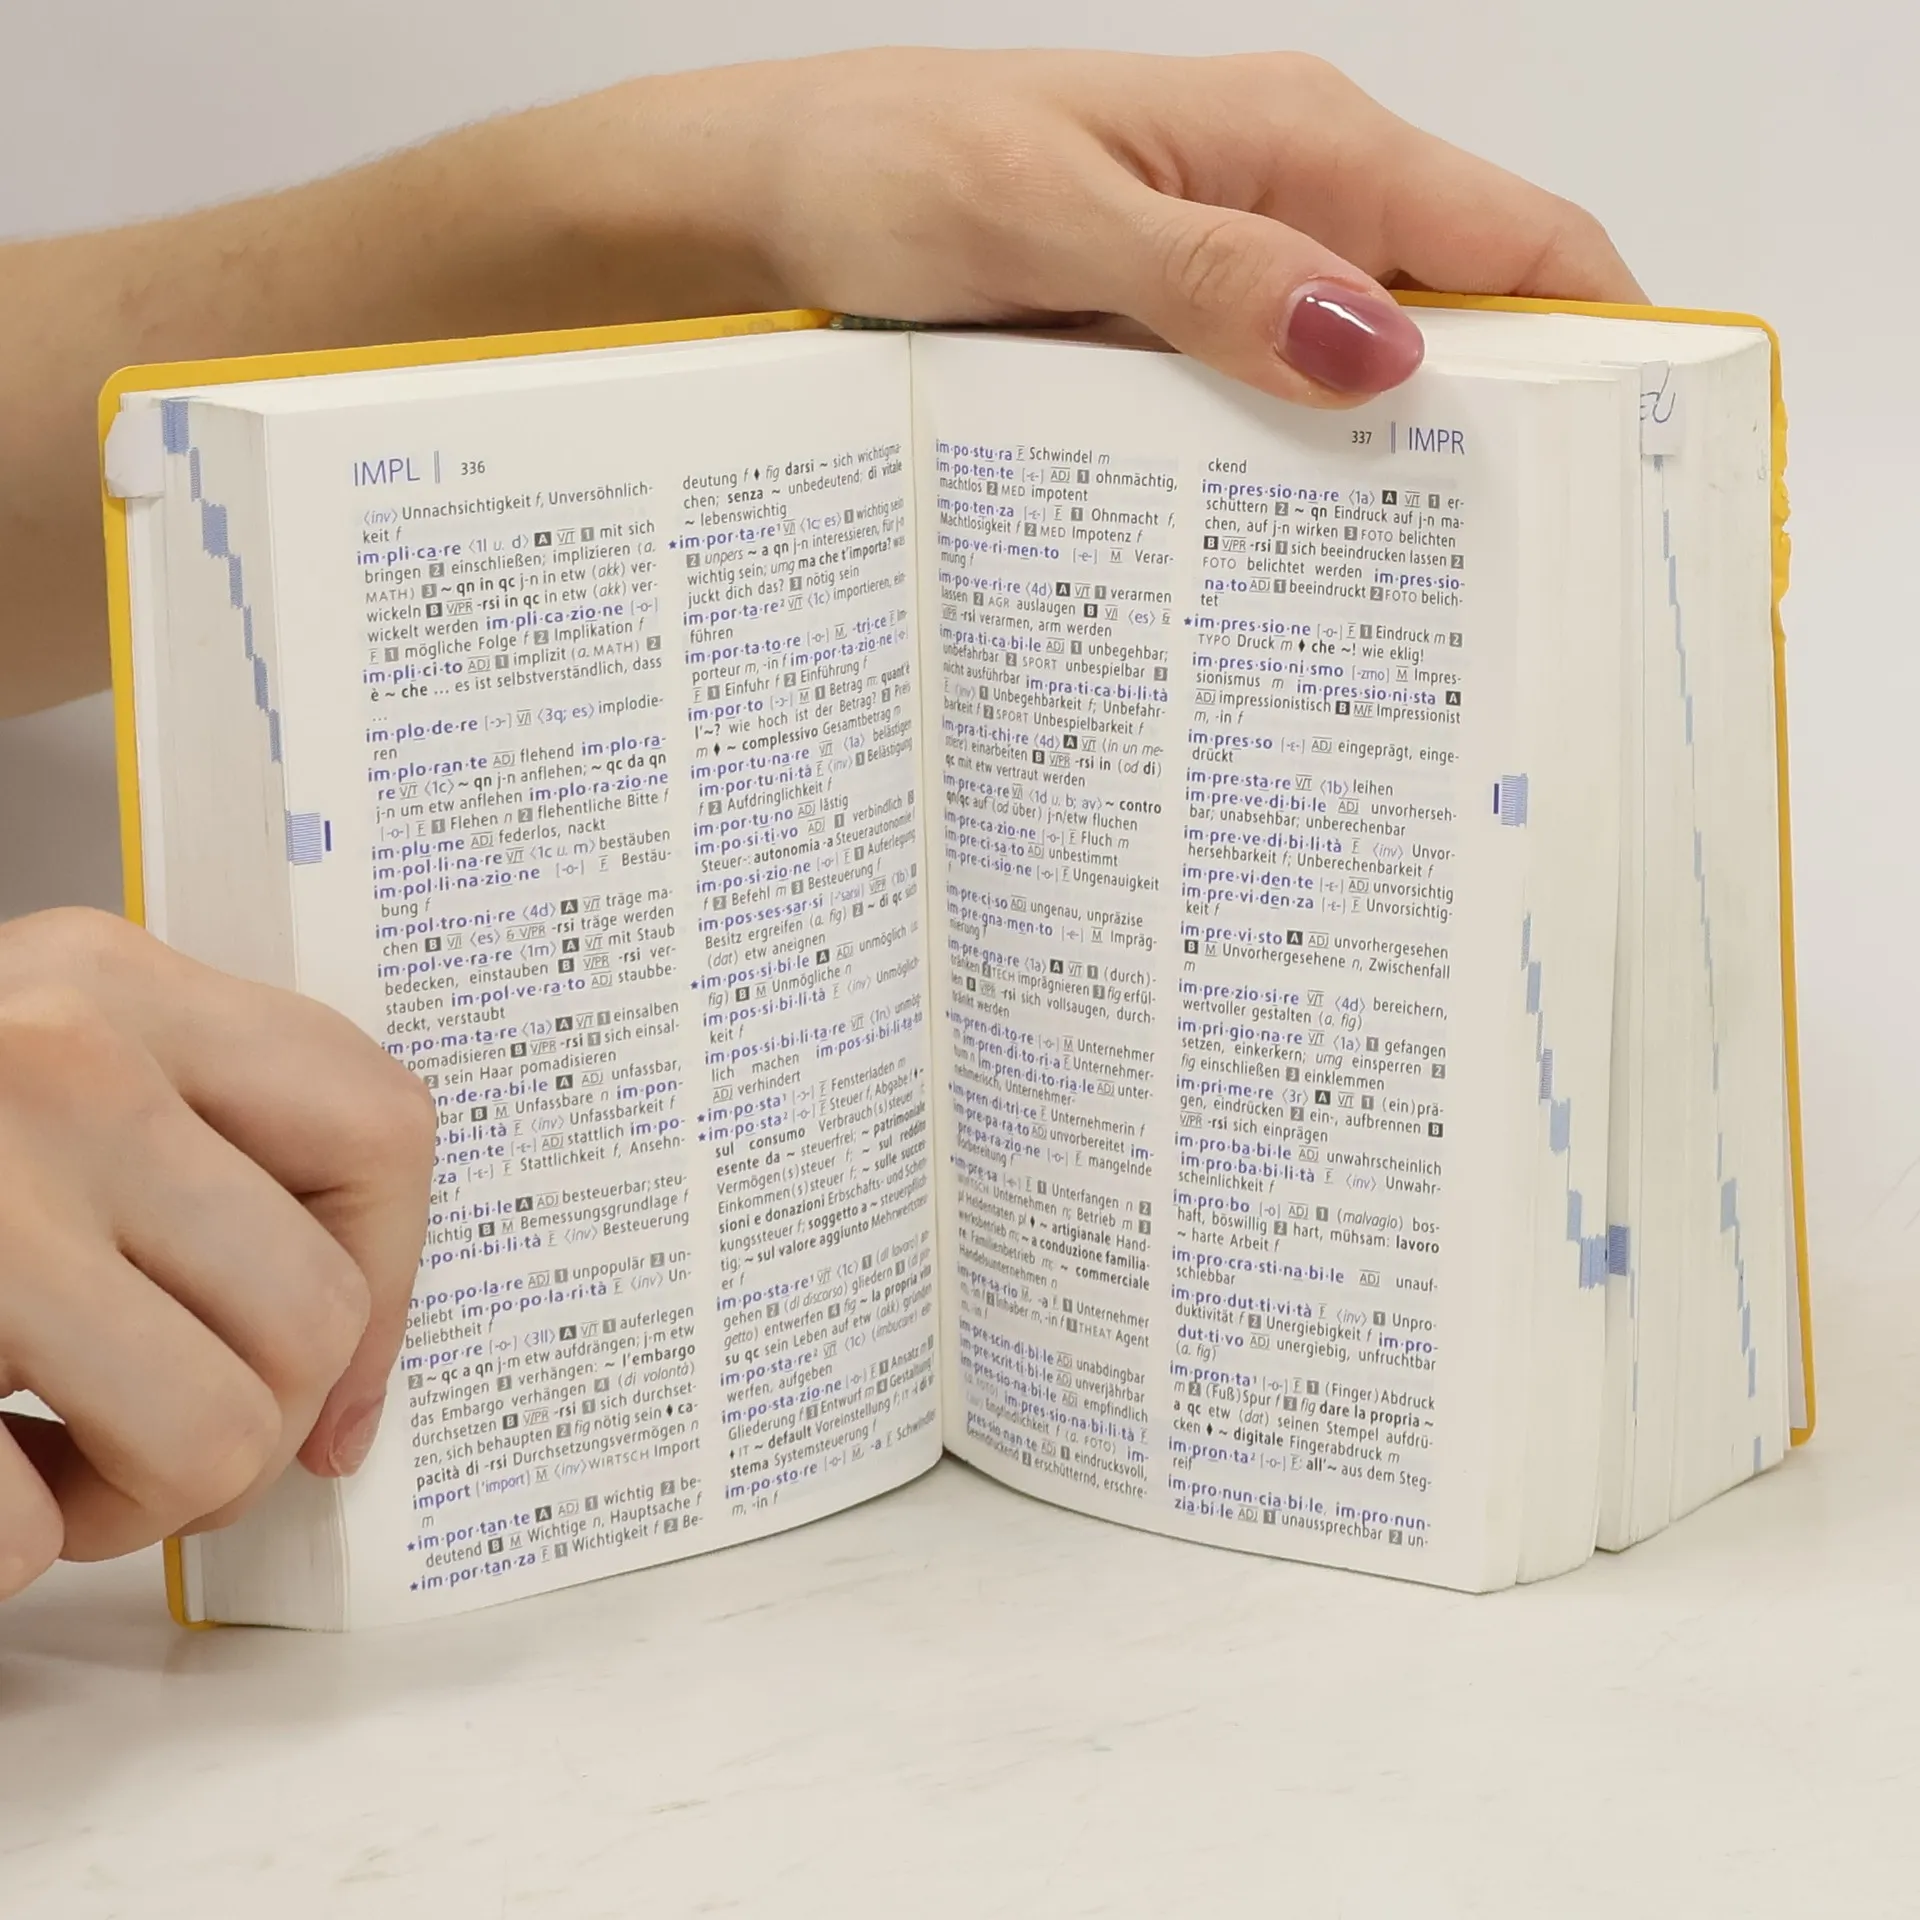 IMPL 336
⟨inv⟩ Unnachsichtigkeit f, Unversöhnlich-
keit f
im·pli·ca·re ⟨1l u. d⟩ A V/T 1 mit sich
bringen 2 einschließen; implizieren (a.
MATH) 3 ~ qn in qc j-n in etw (akk) ver-
wickeln B V/PR -rsi in qc in etw (akk) ver-
wickelt werden im·pli·ca·zio·ne [-o-]
F 1 mögliche Folge f 2 Implikation f
im·pli·ci·to ADJ 1 implizit (a. MATH) 2
è ~ che … es ist selbstverständlich, dass
…
im·plo·de·re [-ɔ-] V/I ⟨3q; es⟩ implodie-
ren
im·plo·ran·te ADJ flehend im·plo·ra-
re V/T ⟨1c⟩ ~ qn j-n anflehen; ~ qc da qn
j-n um etw anflehen im·plo·ra·zio·ne
[-o-] F 1 Flehen n 2 flehentliche Bitte f
im·plu·me ADJ federlos, nackt
im·pol·li·na·re V/T ⟨1c u. m⟩ bestäuben
im·pol·li·na·zio·ne [-o-] F Bestäu-
bung f
im·pol·tro·ni·re ⟨4d⟩ A V/T träge ma-
chen B V/I ⟨es⟩ & V/PR -rsi träge werden
im·pol·ve·ra·re ⟨1m⟩ A V/T mit Staub
bedecken, einstauben B V/PR -rsi ver-
stauben im·pol·ve·ra·to ADJ staubbe-
deckt, verstaubt
im·po·ma·ta·re ⟨1a⟩ A V/T 1 einsalben
pomadisieren B V/PR -rsi 1 sich einsal-
2 sein Haar pomadisieren
n·de·ra·bi·le A ADJ unfassbar,
bar B M Unfassbare n im·pon-
a·bi·li·tà F ⟨inv⟩ Unfassbarkeit f
o·nen·te [-ɛ-] ADJ stattlich im·po-
za [-ɛ-] F Stattlichkeit f, Ansehn-
eit f
o·ni·bi·le A ADJ besteuerbar; steu-
lichtig B M Bemessungsgrundlage f
·po·ni·bi·li·tà F ⟨inv⟩ Besteuerung
n·po·po·la·re ADJ 1 unpopulär 2 un-
beliebt im·po·po·la·ri·tà F ⟨inv⟩ Un-
beliebtheit f
im·por·re [-o-] ⟨3ll⟩ A V/T 1 auferlegen
2 ~ qc a qn j-m etw aufdrängen; j-m etw
aufzwingen 3 verhängen: ~ l'embargo
das Embargo verhängen 4 (di volontà)
durchsetzen B V/PR -rsi 1 sich durchset-
zen, sich behaupten 2 fig nötig sein ♦ ca-
pacità di -rsi Durchsetzungsvermögen n
import ['import] M ⟨inv⟩ WIRTSCH Import
m
★im·por·tan·te A ADJ 1 wichtig 2 be-
deutend B M Wichtige n, Hauptsache f
★im·por·tan·za F 1 Wichtigkeit f 2 Be-
deutung f ♦ fig darsi ~ sich wichtigma-
chen; senza ~ unbedeutend; di vitale
~ lebenswichtig
★im·por·ta·re¹ V/I ⟨1c; es⟩ 1 wichtig sein
2 unpers ~ a qn j-n interessieren, für j-n
wichtig sein; umg ma che t'importa? was
juckt dich das? 3 nötig sein
im·por·ta·re² V/T ⟨1c⟩ importieren, ein-
führen
im·por·ta·to·re [-o-] M, -tri·ce F Im-
porteur m, -in f im·por·ta·zio·ne [-o-]
F 1 Einfuhr f 2 Einführung f
im·por·to [-ɔ-] M 1 Betrag m: quant'è
l'~? wie hoch ist der Betrag? 2 Preis
m ♦ ~ complessivo Gesamtbetrag m
im·por·tu·na·re V/T ⟨1a⟩ belästigen
im·por·tu·ni·tà F ⟨inv⟩ 1 Belästigung
f 2 Aufdringlichkeit f
im·por·tu·no ADJ lästig
im·po·si·ti·vo ADJ 1 verbindlich 2
Steuer-: autonomia -a Steuerautonomie f
im·po·si·zio·ne [-o-] F 1 Auferlegung
f 2 Befehl m 3 Besteuerung f
im·pos·ses·sar·si [-'sarsi] V/PR ⟨1b⟩ 1
Besitz ergreifen (a. fig) 2 ~ di qc sich
(dat) etw aneignen
★im·pos·si·bi·le A ADJ unmöglich (a.
fig) B M Unmögliche n
im·pos·si·bi·li·tà F ⟨inv⟩ Unmöglich-
keit f
im·pos·si·bi·li·ta·re V/T ⟨1n⟩ unmög-
lich machen im·pos·si·bi·li·ta·to
ADJ verhindert
★im·po·sta¹ [-ɔ-] F Fensterladen m
★im·po·sta² [-o-] F Steuer f, Abgabe f ♦ -
sul consumo Verbrauch(s)steuer f;
esente da ~ steuerfrei; ~ patrimoniale
Vermögen(s)steuer f; ~ sul reddito
Einkommen(s)steuer f; ~ sulle succes-
sioni e donazioni Erbschafts- und Schen-
kungssteuer f; soggetto a ~ steuerpflich-
tig; ~ sul valore aggiunto Mehrwertsteu-
er f
im·po·sta·re¹ V/T ⟨1c⟩ 1 (di lavoro) an-
gehen 2 (di discorso) gliedern 3 (di pro-
getto) entwerfen 4 fig ~ la propria vita
su qc sein Leben auf etw (akk) gründen
im·po·sta·re² V/T ⟨1c⟩ (imbucare) ein-
werfen, aufgeben
im·po·sta·zio·ne [-o-] F 1 Ansatz m 2
Gliederung f 3 Entwurf m 4 Gestaltung f
♦ IT ~ default Voreinstellung f; IT ~ di si-
stema Systemsteuerung f
im·po·sto·re [-o-] M, -a F Schwindler
m, -in f
337 IMPR
im·po·stu·ra F Schwindel m
im·po·ten·te [-ɛ-] ADJ 1 ohnmächtig,
machtlos 2 MED impotent
im·po·ten·za [-ɛ-] F 1 Ohnmacht f,
Machtlosigkeit f 2 MED Impotenz f
im·po·ve·ri·men·to [-e-] M Verar-
mung f
im·po·ve·ri·re ⟨4d⟩ A V/T 1 verarmen
lassen 2 AGR auslaugen B V/I ⟨es⟩ &
V/PR -rsi verarmen, arm werden
im·pra·ti·ca·bi·le ADJ 1 unbegehbar;
unbefahrbar 2 SPORT unbespielbar 3
nicht ausführbar im·pra·ti·ca·bi·li·tà
F ⟨inv⟩ 1 Unbegehbarkeit f; Unbefahr-
barkeit f 2 SPORT Unbespielbarkeit f
im·pra·ti·chi·re ⟨4d⟩ A V/T (in un me-
stiere) einarbeiten B V/PR -rsi in (od di)
qc mit etw vertraut werden
im·pre·ca·re V/I ⟨1d u. b; av⟩ ~ contro
qn/qc auf (od über) j-n/etw fluchen
im·pre·ca·zio·ne [-o-] F Fluch m
im·pre·ci·sa·to ADJ unbestimmt
im·pre·ci·sio·ne [-o-] F Ungenauigkeit
f
im·pre·ci·so ADJ ungenau, unpräzise
im·pre·gna·men·to [-e-] M Impräg-
nierung f
im·pre·gna·re ⟨1a⟩ A V/T 1 (durch)-
tränken 2 TECH imprägnieren 3 fig erfül-
len B V/PR -rsi sich vollsaugen, durch-
tränkt werden
★im·pren·di·to·re [-o-] M Unternehmer
m im·pren·di·to·ri·a F Unternehmer-
tum n im·pren·di·to·ria·le ADJ unter-
nehmerisch, Unternehmer-
★im·pren·di·tri·ce F Unternehmerin f
im·pre·pa·ra·to ADJ unvorbereitet im-
pre·pa·ra·zio·ne [-o-] F mangelnde
Vorbereitung f
★im·pre·sa [-e-] F 1 Unterfangen n 2
WIRTSCH Unternehmen n; Betrieb m 3
pl Heldentaten pl ♦ ~ artigianale Hand-
werksbetrieb m; ~ a conduzione familia-
re Familienbetrieb m; ~ commerciale
Handelsunternehmen n
im·pre·sa·rio M, -a F 1 Unternehmer
m, -in f 2 Inhaber m, -in f 3 THEAT Agent
m, -in f
im·pre·scin·di·bi·le ADJ unabdingbar
im·pre·scrit·ti·bi·le ADJ unverjährbar
im·pres·sio·na·bi·le ADJ empfindlich
(a. FOTO) im·pres·sio·na·bi·li·tà F
⟨inv⟩ Empfindlichkeit f (a. FOTO) im-
pres·sio·nan·te ADJ 1 eindrucksvoll,
beeindruckend 2 erschütternd, erschre-
ckend
im·pres·sio·na·re ⟨1a⟩ A V/T 1 er-
schüttern 2 ~ qn Eindruck auf j-n ma-
chen, auf j-n wirken 3 FOTO belichten
B V/PR -rsi 1 sich beeindrucken lassen 2
FOTO belichtet werden im·pres·sio-
na·to ADJ 1 beeindruckt 2 FOTO belich-
tet
★im·pres·sio·ne [-o-] F 1 Eindruck m 2
TYPO Druck m ♦ che ~! wie eklig!
im·pres·sio·ni·smo [-zmo] M Impres-
sionismus m im·pres·sio·ni·sta A
ADJ impressionistisch B M/F Impressionist
m, -in f
im·pres·so [-ɛ-] ADJ eingeprägt, einge-
drückt
im·pre·sta·re V/T ⟨1b⟩ leihen
im·pre·ve·di·bi·le ADJ unvorherseh-
bar; unabsehbar; unberechenbar
im·pre·ve·di·bi·li·tà F ⟨inv⟩ Unvor-
hersehbarkeit f; Unberechenbarkeit f
im·pre·vi·den·te [-ɛ-] ADJ unvorsichtig
im·pre·vi·den·za [-ɛ-] F Unvorsichtig-
keit f
im·pre·vi·sto A ADJ unvorhergesehen
B M Unvorhergesehene n, Zwischenfall
m
im·pre·zio·si·re V/T ⟨4d⟩ bereichern,
wertvoller gestalten (a. fig)
im·pri·gio·na·re V/T ⟨1a⟩ 1 gefangen
setzen, einkerkern; umg einsperren 2
fig einschließen 3 einklemmen
im·pri·me·re ⟨3r⟩ A V/T 1 (ein)prä-
gen, eindrücken 2 ein-, aufbrennen B
V/PR -rsi sich einprägen
im·pro·ba·bi·le ADJ unwahrscheinlich
im·pro·ba·bi·li·tà F ⟨inv⟩ Unwahr-
scheinlichkeit f
im·pro·bo [-o] ADJ 1 (malvagio) bos-
haft, böswillig 2 hart, mühsam: lavoro
~ harte Arbeit f
im·pro·cra·sti·na·bi·le ADJ unauf-
schiebbar
im·pro·dut·ti·vi·tà F ⟨inv⟩ 1 Unpro-
duktivität f 2 Unergiebigkeit f im·pro-
dut·ti·vo ADJ unergiebig, unfruchtbar
(a. fig)
im·pron·ta¹ [-o-] F 1 (Finger)Abdruck
m 2 (Fuß)Spur f 3 fig dare la propria ~
a qc etw (dat) seinen Stempel aufdrü-
cken ♦ ~ digitale Fingerabdruck m
im·pron·ta² [-o-] F: all'~ aus dem Steg-
reif
im·pro·nun·cia·bi·le, im·pro·nun-
zia·bi·le ADJ 1 unaussprechbar 2 un-